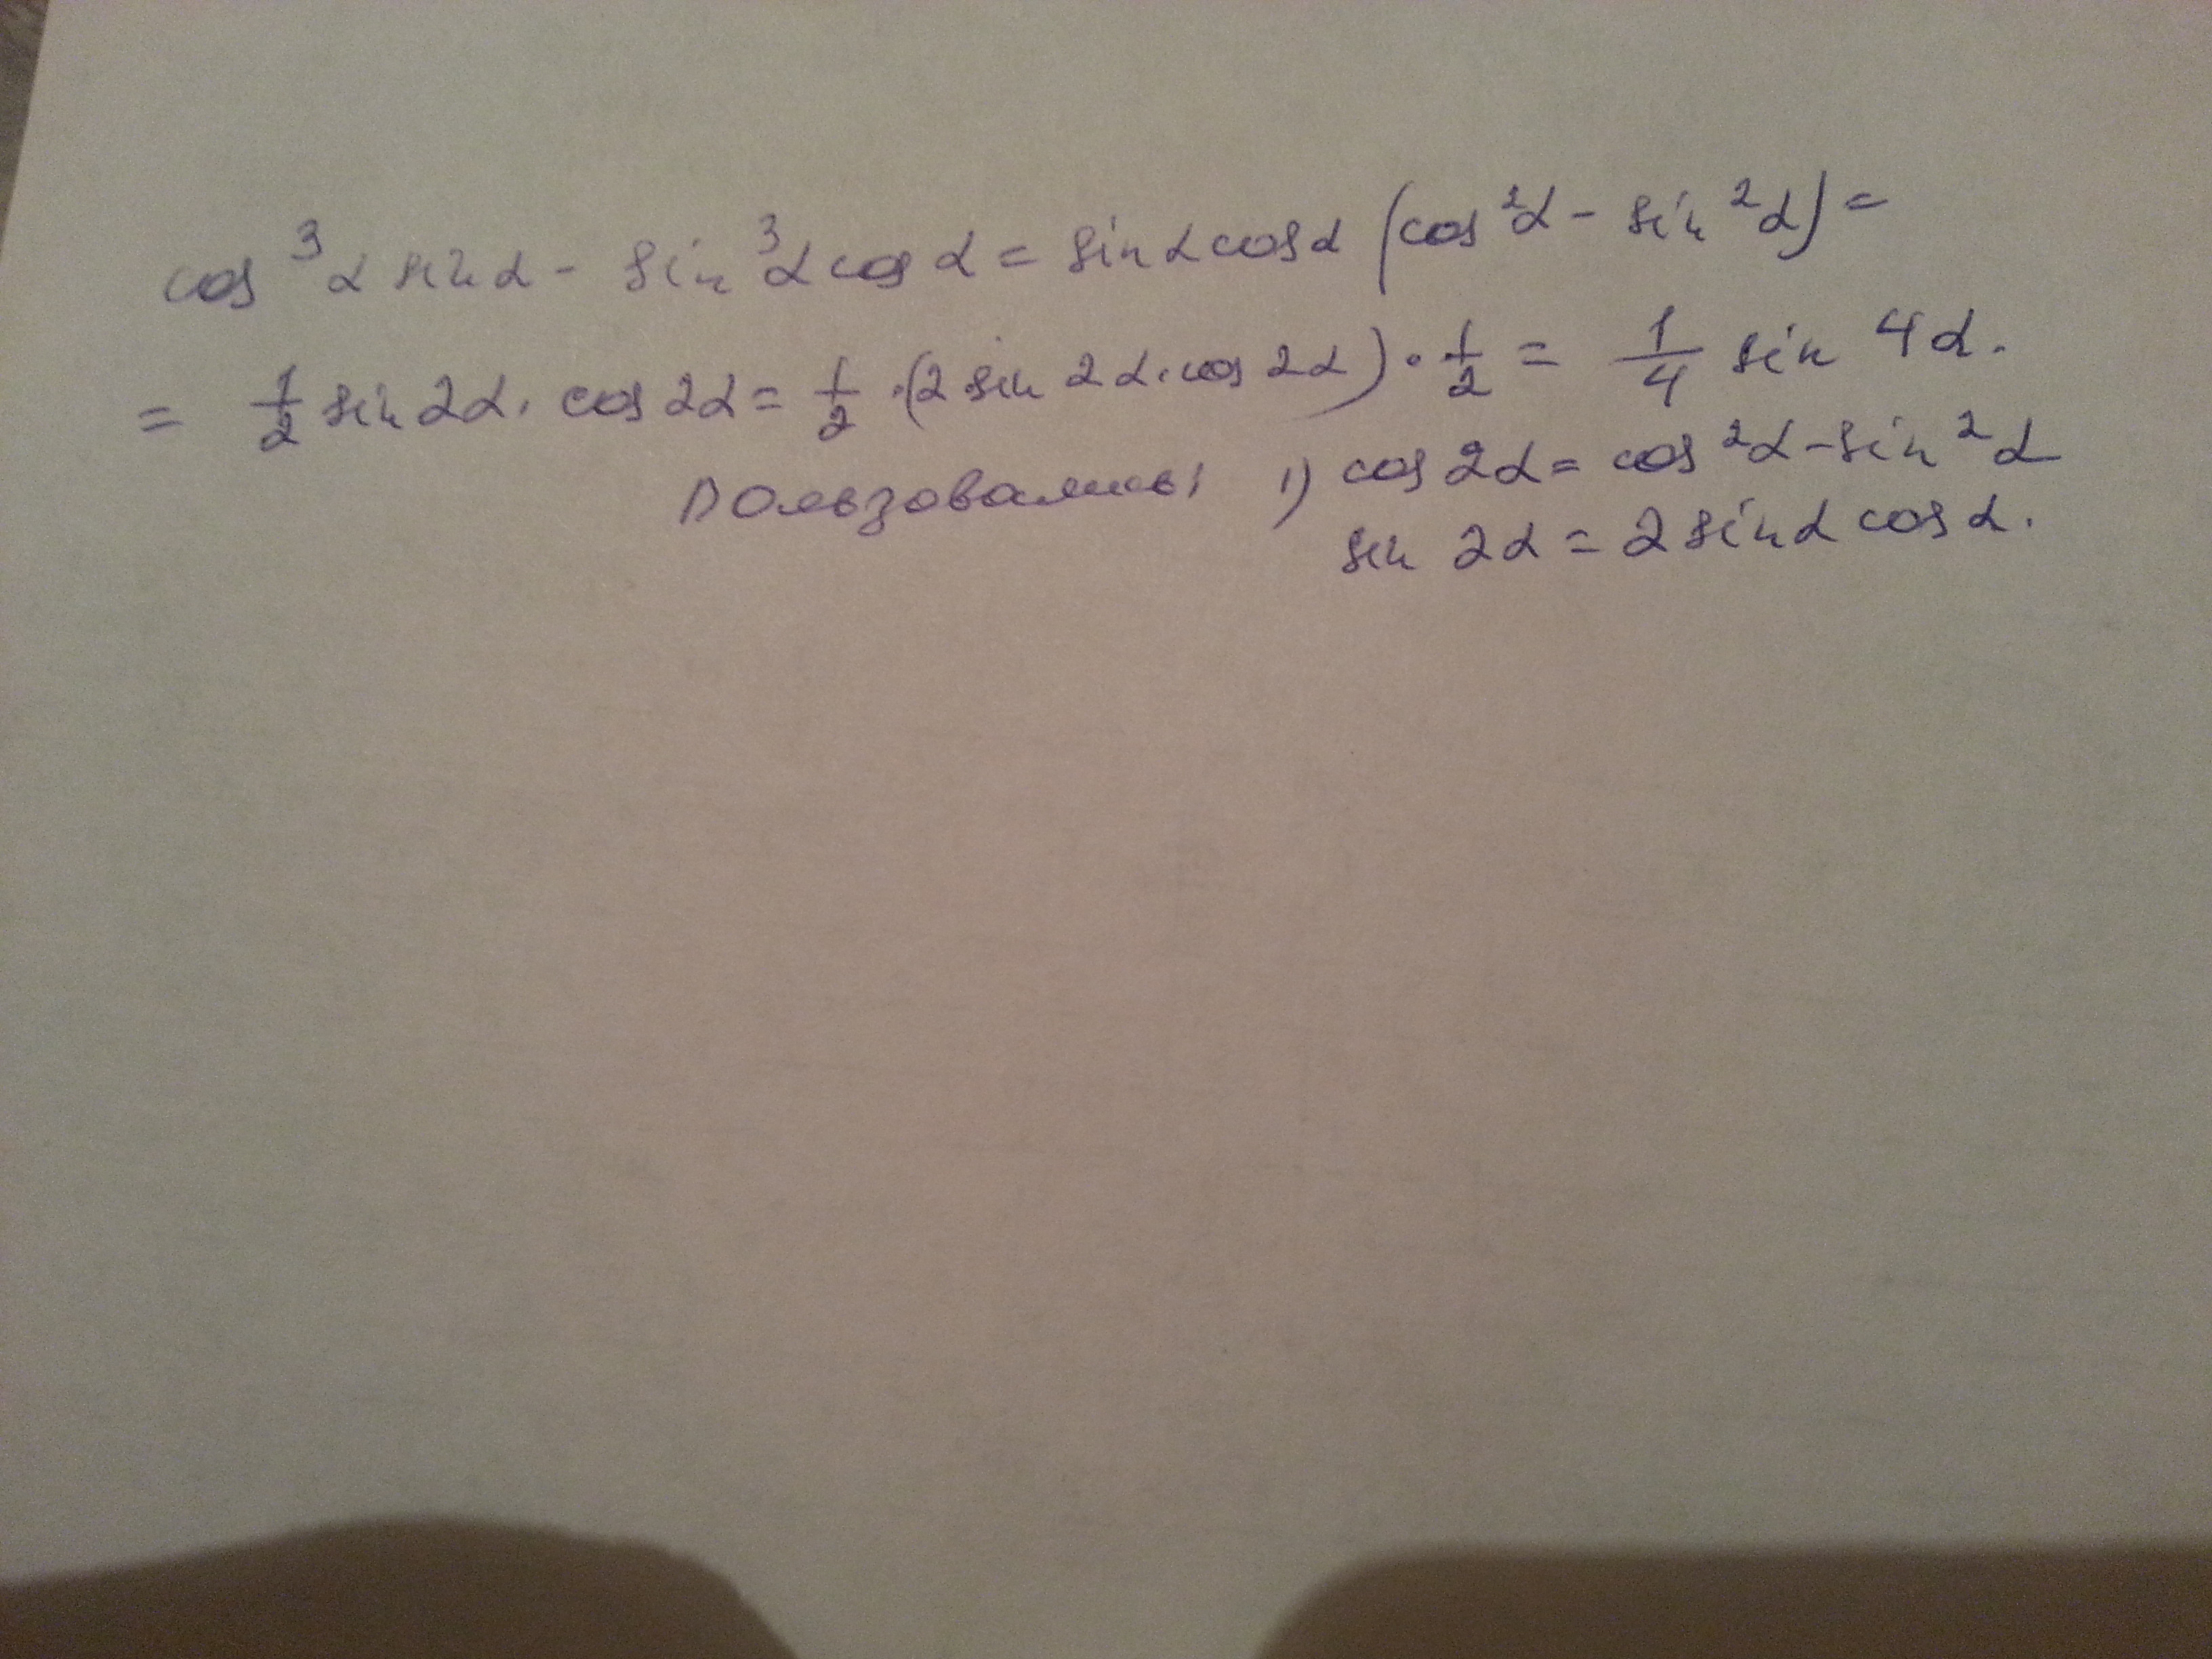 cos³α sin α - sin³α cos α = sin α cos α (cos²α - sin²α) =
= 1/2 sin 2α · cos 2α = 1/2 · (2 sin 2α · cos 2α) · 1/2 = 1/4 sin 4α.
Пользовались: 1) cos 2α = cos²α - sin²α
sin 2α = 2 sin α cos α.